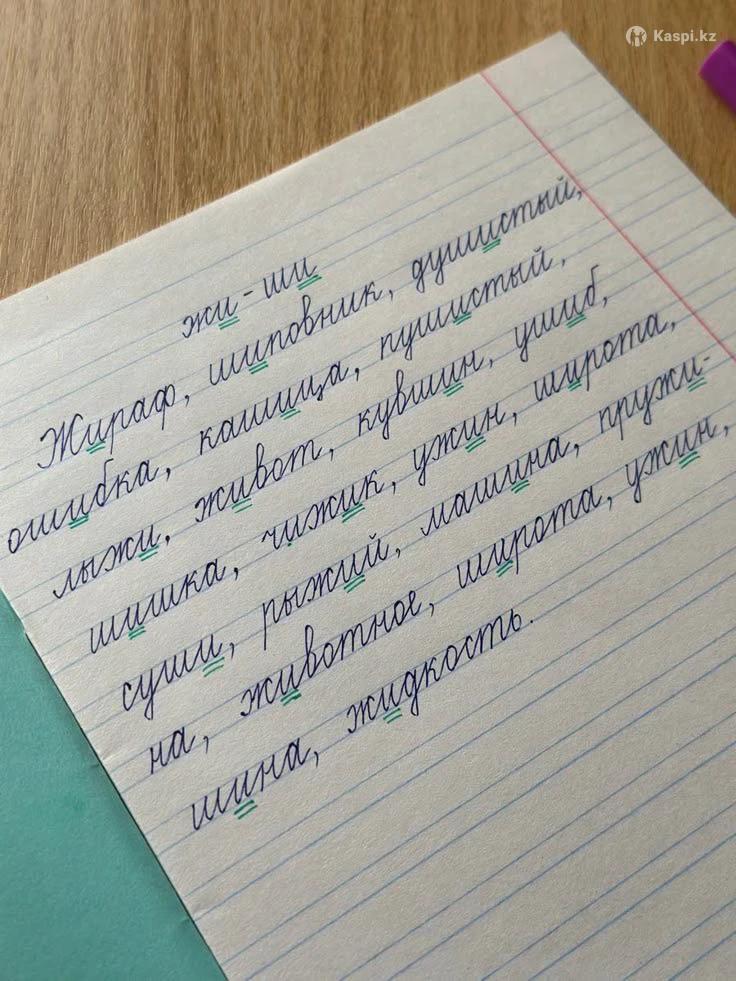 Kaspi.kz
жи-ши
Жираф, шиповник, душистый,
ошибка, кашица, пушистый,
лыжи, живот, кувшин, ушиб,
шишка, чижик, ужин, широта,
суши, рыжий, машина, пружи-
на, животное, широта, ужин,
шина, жидкость.